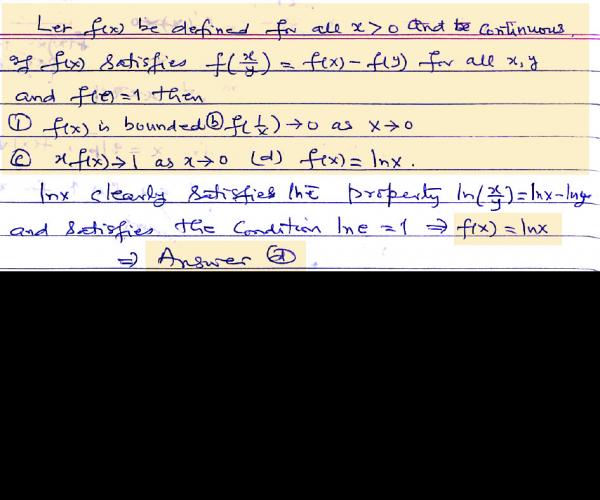 Let f(x) be defined for all x>0 and be continuous.
If f(x) satisfies f(x/y) = f(x) - f(y) for all x, y
and f(e) = 1 then
① f(x) is bounded ⓑ f(1/x) → 0 as x → 0
ⓒ x f(x) → 1 as x → 0 (d) f(x) = ln x.
ln x clearly satisfies the property ln(x/y) = lnx - lny
and satisfies the condition ln e = 1 ⇒ f(x) = lnx
⇒ Answer ⓓ